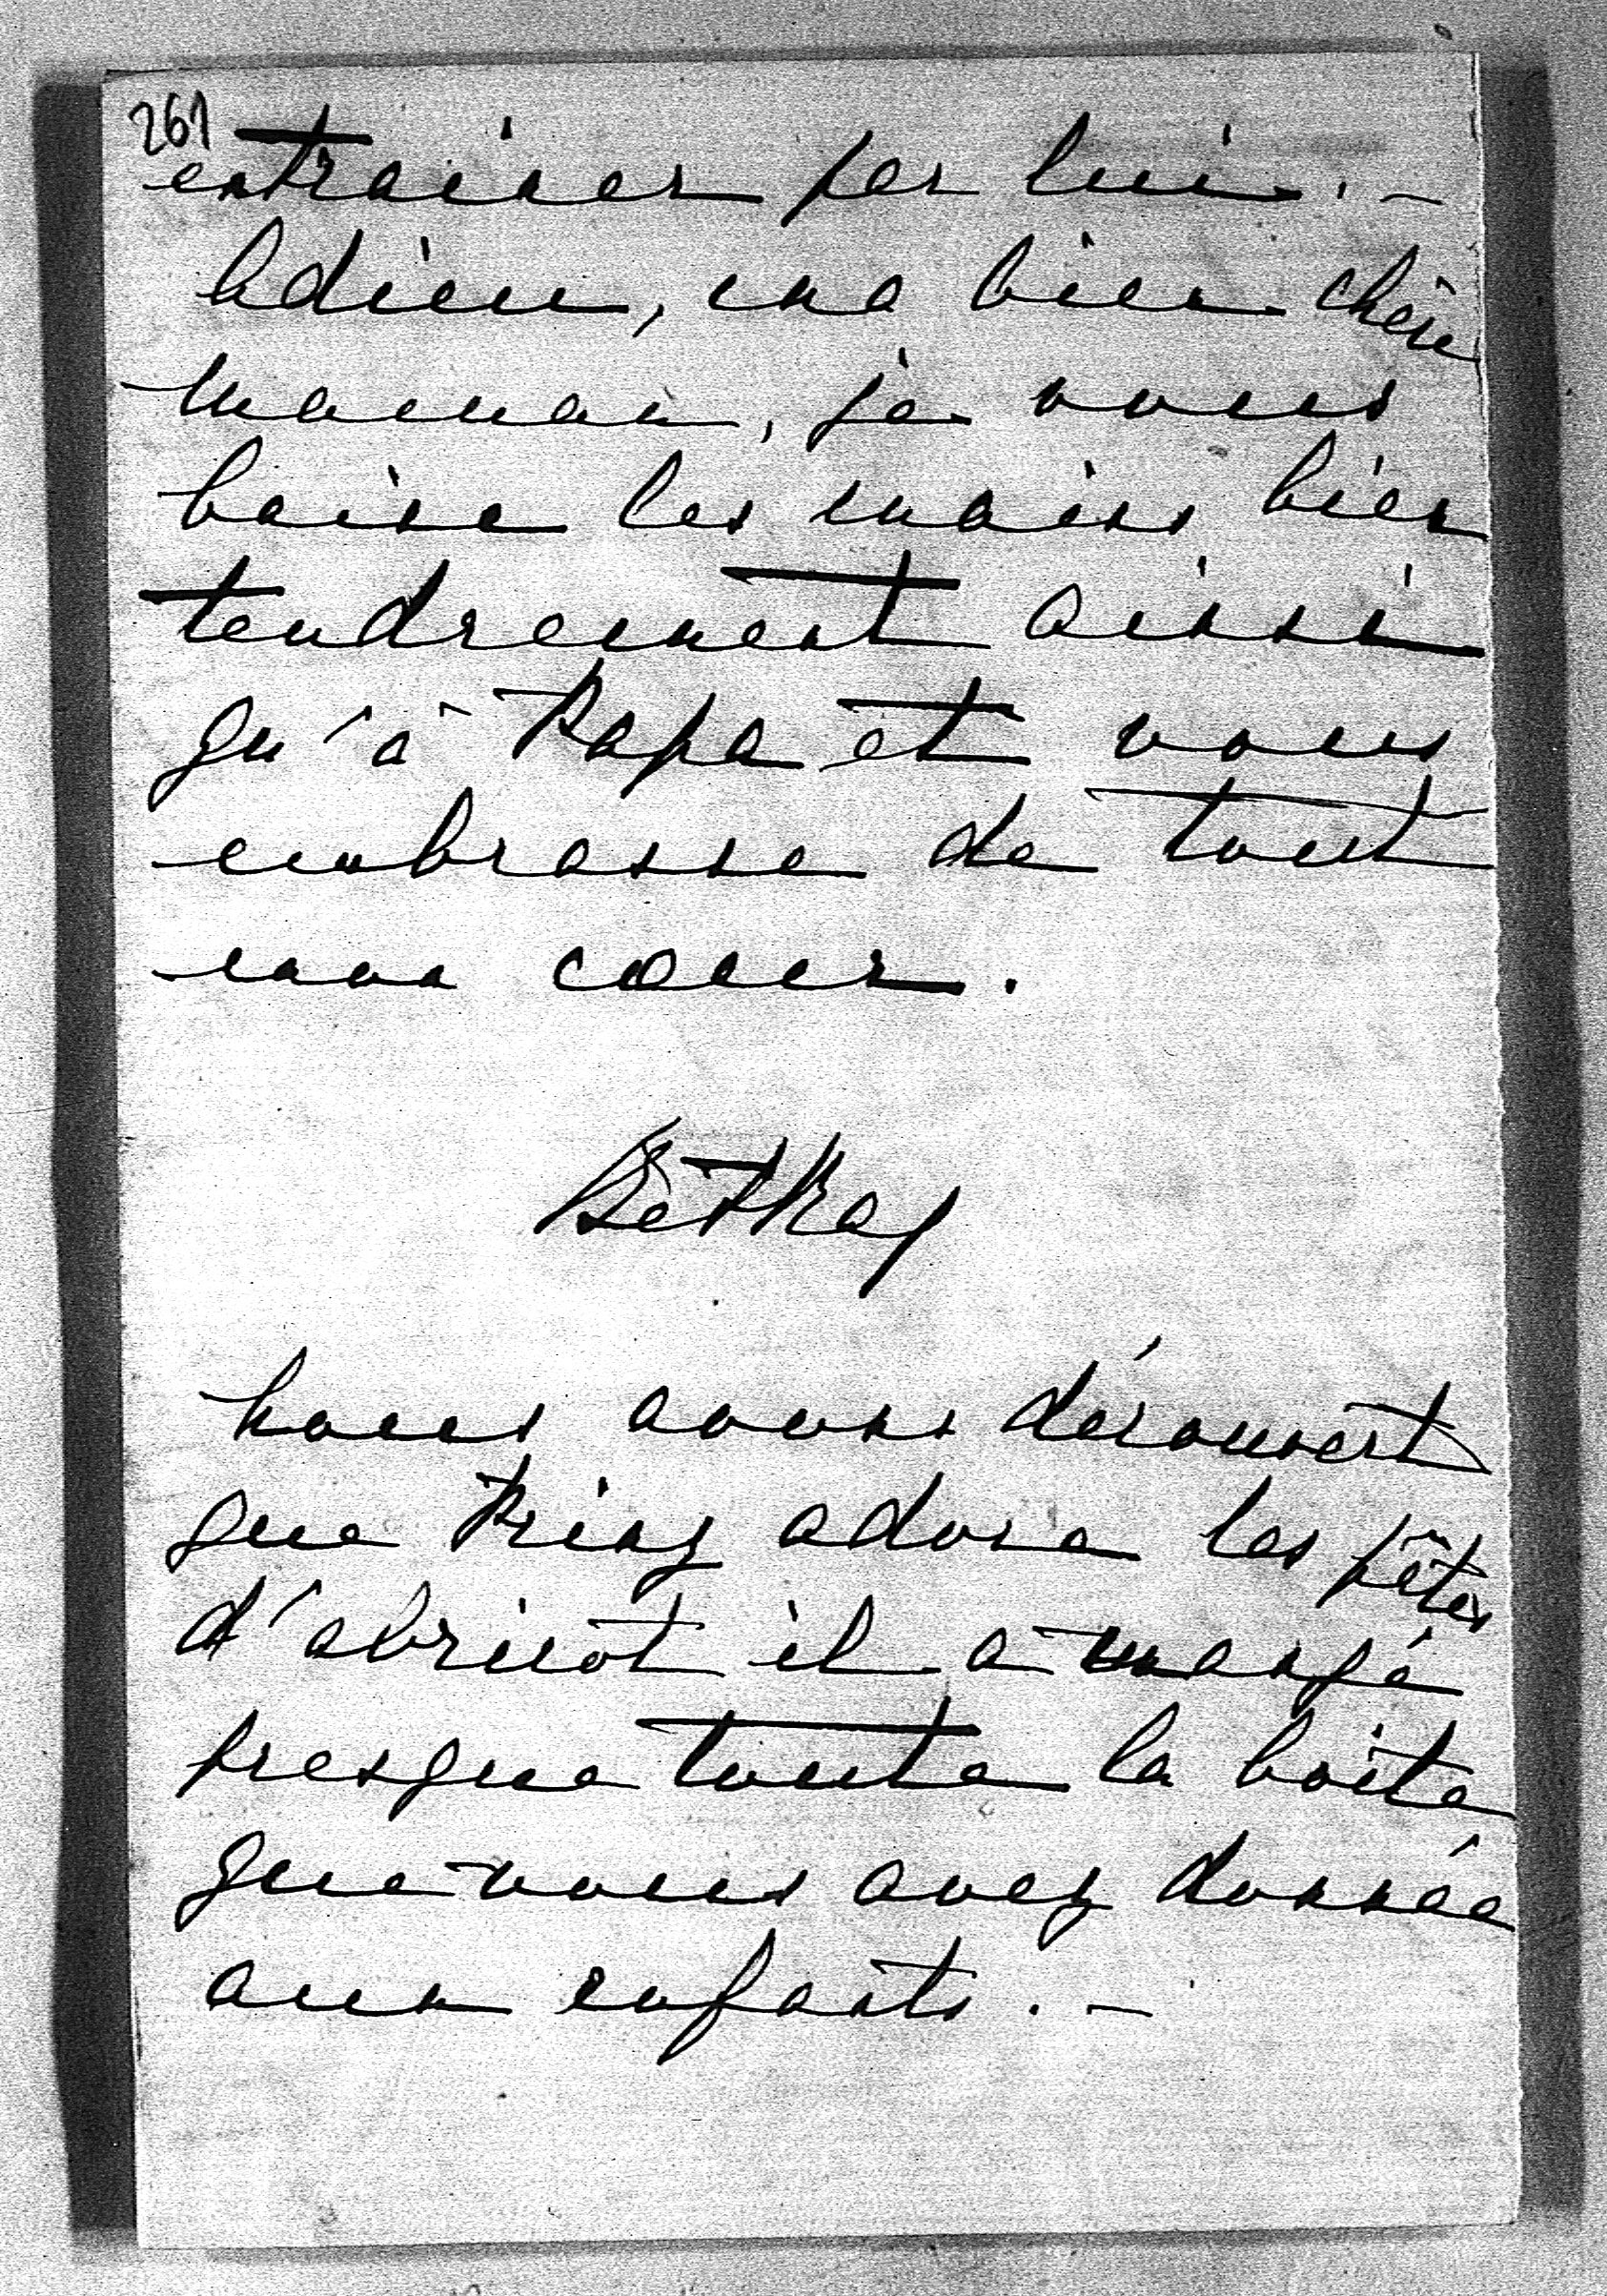 261
entrainer par lui. –
Adieu, ma bien chère
Maman, je vous
baise les mains bien
tendrement ainsi
qu'à Papa et vous
embrasse de tout
mon cœur.
Nous avons découvert
que Prinz adore les pâtes
d'abricot il a mangé
presque toute la boîte
que vous avez donnée
aux enfants. –